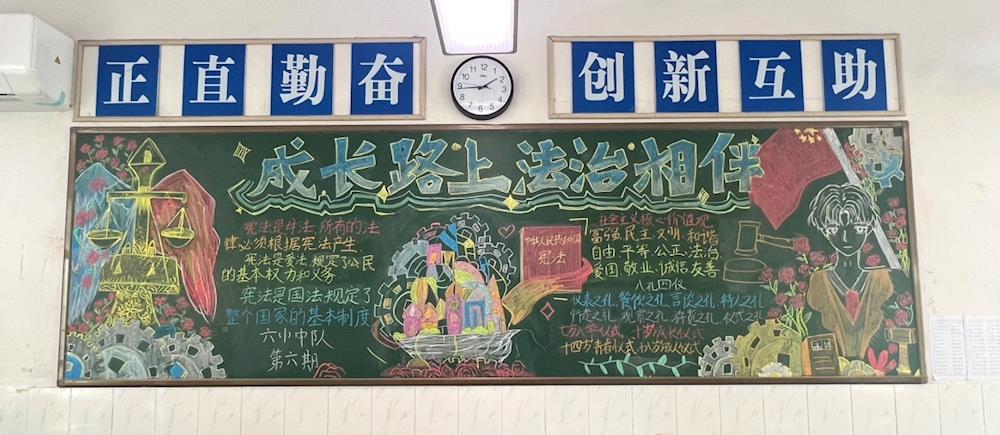 正直勤奋
创新互助
成长路上,法治相伴
宪法是母法,所有的法
律必须根据宪法产生
宪法是爱法,规定了公民
的基本权力和义务
宪法是国法规定了
整个国家的基本制度
六小中队
第六期
中华人民共和国
宪法
社会主义核心价值观
富强 民主 文明 和谐
自由 平等 公正 法治
爱国 敬业 诚信 友善
八礼四仪
仪表之礼 餐饮之礼 言谈之礼 待人之礼
行走之礼 观赏之礼 游览之礼 仪式之礼
七岁入学仪式 十岁成长仪式
十四岁青春仪式 十八岁成人仪式